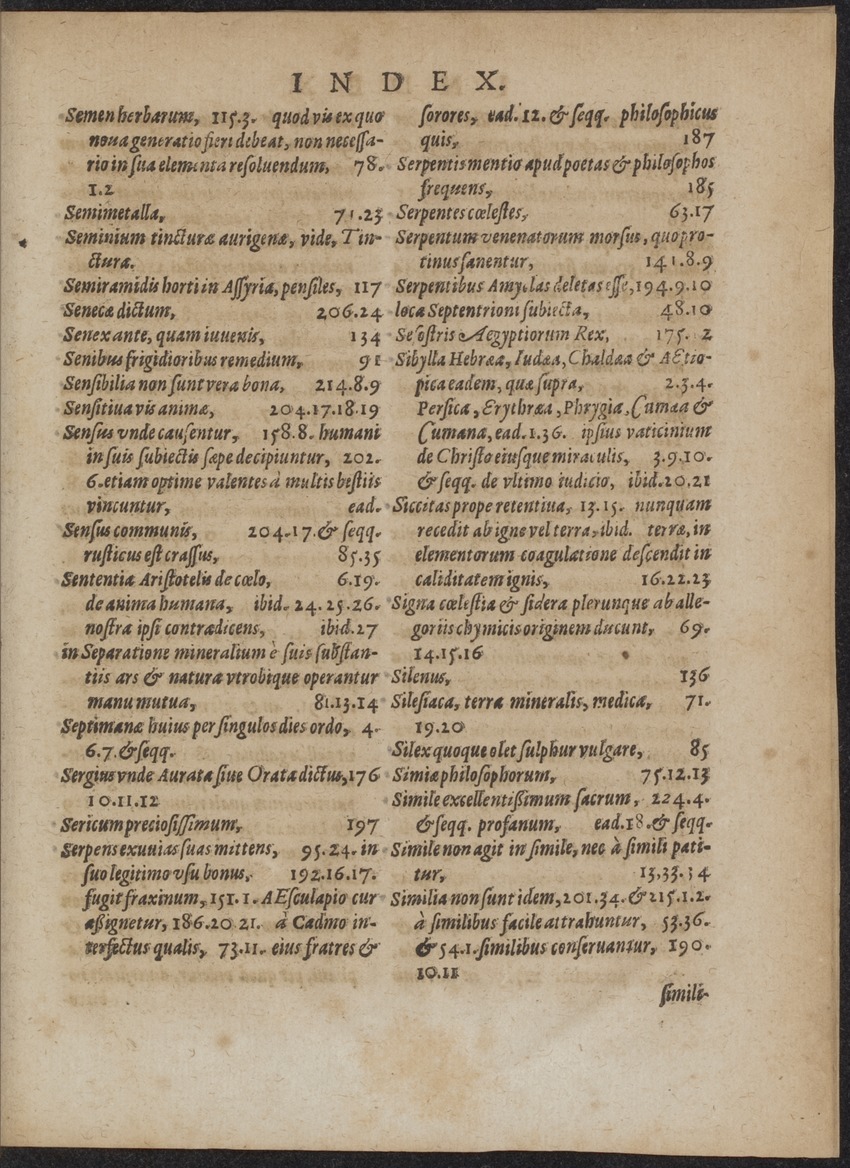 INDEX.
Semen herbarum, 115.3. quod vis ex quo
noua generatio fieri debeat, non necessa-
rio in sua elementa resoluendum, 78.
1.2
Semimetalla, 71.23
Seminium tincturæ aurigenæ, vide, Tin-
ctura.
Semiramidis horti in Assyria, pensiles, 117
Senecæ dictum, 206.24
Senex ante, quam iuuenis, 134
Senibus frigidioribus remedium, 91
Sensibilia non sunt vera bona, 214.8.9
Sensitiua vis animæ, 204.17.18.19
Sensus vnde causentur, 158.8. humani
in suis subiectis sæpe decipiuntur, 202.
6. etiam optime valentes à multis bestiis
vincuntur, ead.
Sensus communis, 204.17.& seqq.
rusticus est crassus, 85.35
Sententia Aristotelis de cœlo, 6.19.
de anima humana, ibid. 24.25.26.
nostra ipsi contrædicens, ibid.27
in Separatione mineralium è suis substan-
tiis ars & natura vtrobique operantur
manu mutua, 81.13.14
Septimanæ huius per singulos dies ordo, 4.
6.7.& seqq.
Sergius vnde Aurata siue Orata dictus, 176
10.11.12
Sericum preciosissimum, 197
Serpens exuuias suas mittens, 95.24. in
suo legitimo vsu bonus, 192.16.17.
fugit fraxinum, 151.1. AEsculapio cur
assignetur, 186.20 21. à Cadmo in-
terfectus qualis, 73.11. eius fratres &
sorores, ead. 12. & seqq. philosophicus
quis, 187
Serpentis mentio apud poetas & philosophos
frequens, 185
Serpentes cœlestes, 63.17
Serpentum venenatorum morsus, quo pro-
tinus sanentur, 141.8.9
Serpentibus Amyclas deletas esse, 194.9.10
loca Septentrioni subiecta, 48.10
Sesostris Aegyptiorum Rex, 175. 2
Sibylla Hebræa, Iudæa, Chaldæa & AEtio-
pica eadem, quæ supra, 2.3.4.
Persica, Erythræa, Phrygia, Cumæa &
Cumana, ead. 1.36. ipsius vaticinium
de Christo eiusque miraculis, 3.9.10.
& seqq. de vltimo iudicio, ibid.20.21
Siccitas prope retentiua, 13.15. nunquam
recedit ab igne vel terra, ibid. terræ, in
elementorum coagulatione descendit in
caliditatem ignis, 16.22.23
Signa cœlestia & sidera plerunque ab alle-
goriis chymicis originem ducunt, 69.
14.15.16
Silenus, 136
Silesiaca, terra mineralis, medica, 71.
19.20
Silex quoque olet sulphur vulgare, 85
Simiæ philosophorum, 75.12.13
Simile excellentissimum sacrum, 224.4.
& seqq. profanum, ead.18.& seqq.
Simile non agit in simile, nec à simili pati-
tur, 13.33.34
Similia non sunt idem, 201.34.& 215.1.2.
à similibus facile attrahuntur, 53.36.
& 54.1. similibus conseruantur, 190.
10.11
simili-